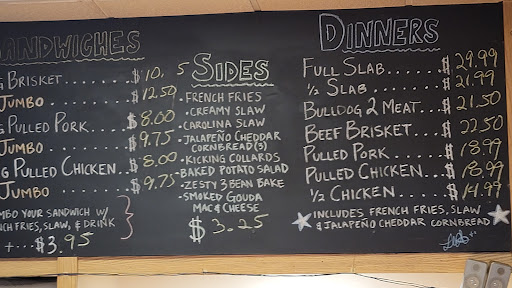 SANDWICHES
G BRISKET........ $10. 5
JUMBO 12.50
G PULLED PORK... $8.00
JUMBO 9.75
G PULLED CHICKEN.. $8.00
JUMBO $9.75
MBO YOUR SANDWICH W/
NCH FRIES, SLAW, & DRINK
+...$3.95
SIDES
• FRENCH FRIES
• CREAMY SLAW
• CAROLINA SLAW
• JALAPEÑO CHEDDAR
CORNBREAD (3)
• KICKING COLLARDS
• BAKED POTATO SALAD
• ZESTY 3 BEAN BAKE
• SMOKED GOUDA
MAC & CHEESE
$3.25
DINNERS
FULL SLAB...... $29.99
1/2 SLAB........ $21.99
BULLDOG 2 MEAT... $21.50
BEEF BRISKET..... $22.50
PULLED PORK..... $18.99
PULLED CHICKEN... $18.99
1/2 CHICKEN...... $14.99
INCLUDES FRENCH FRIES, SLAW
& JALAPEÑO CHEDDAR CORNBREAD